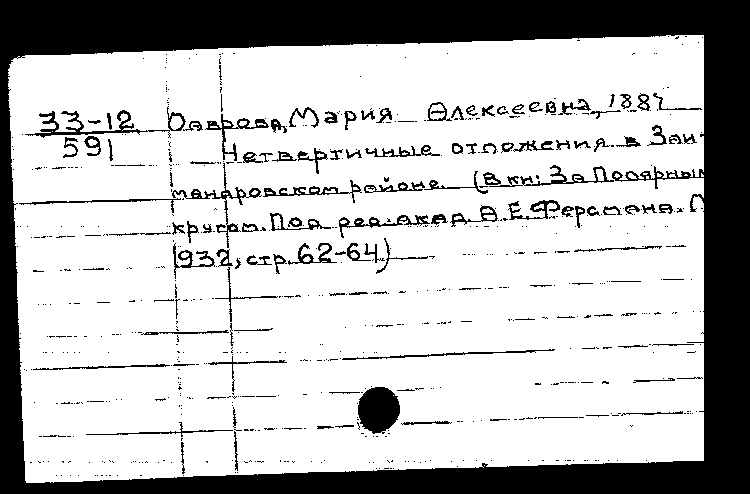 33-12 Лаврова, Мария Алексеевна, 1887
591 Четвертичные отложения в Заи-
мандровском районе. (В кн: За Полярным
кругом. Под ред. акад. А.Е.Ферсмана. Л
1932, стр. 62-64)